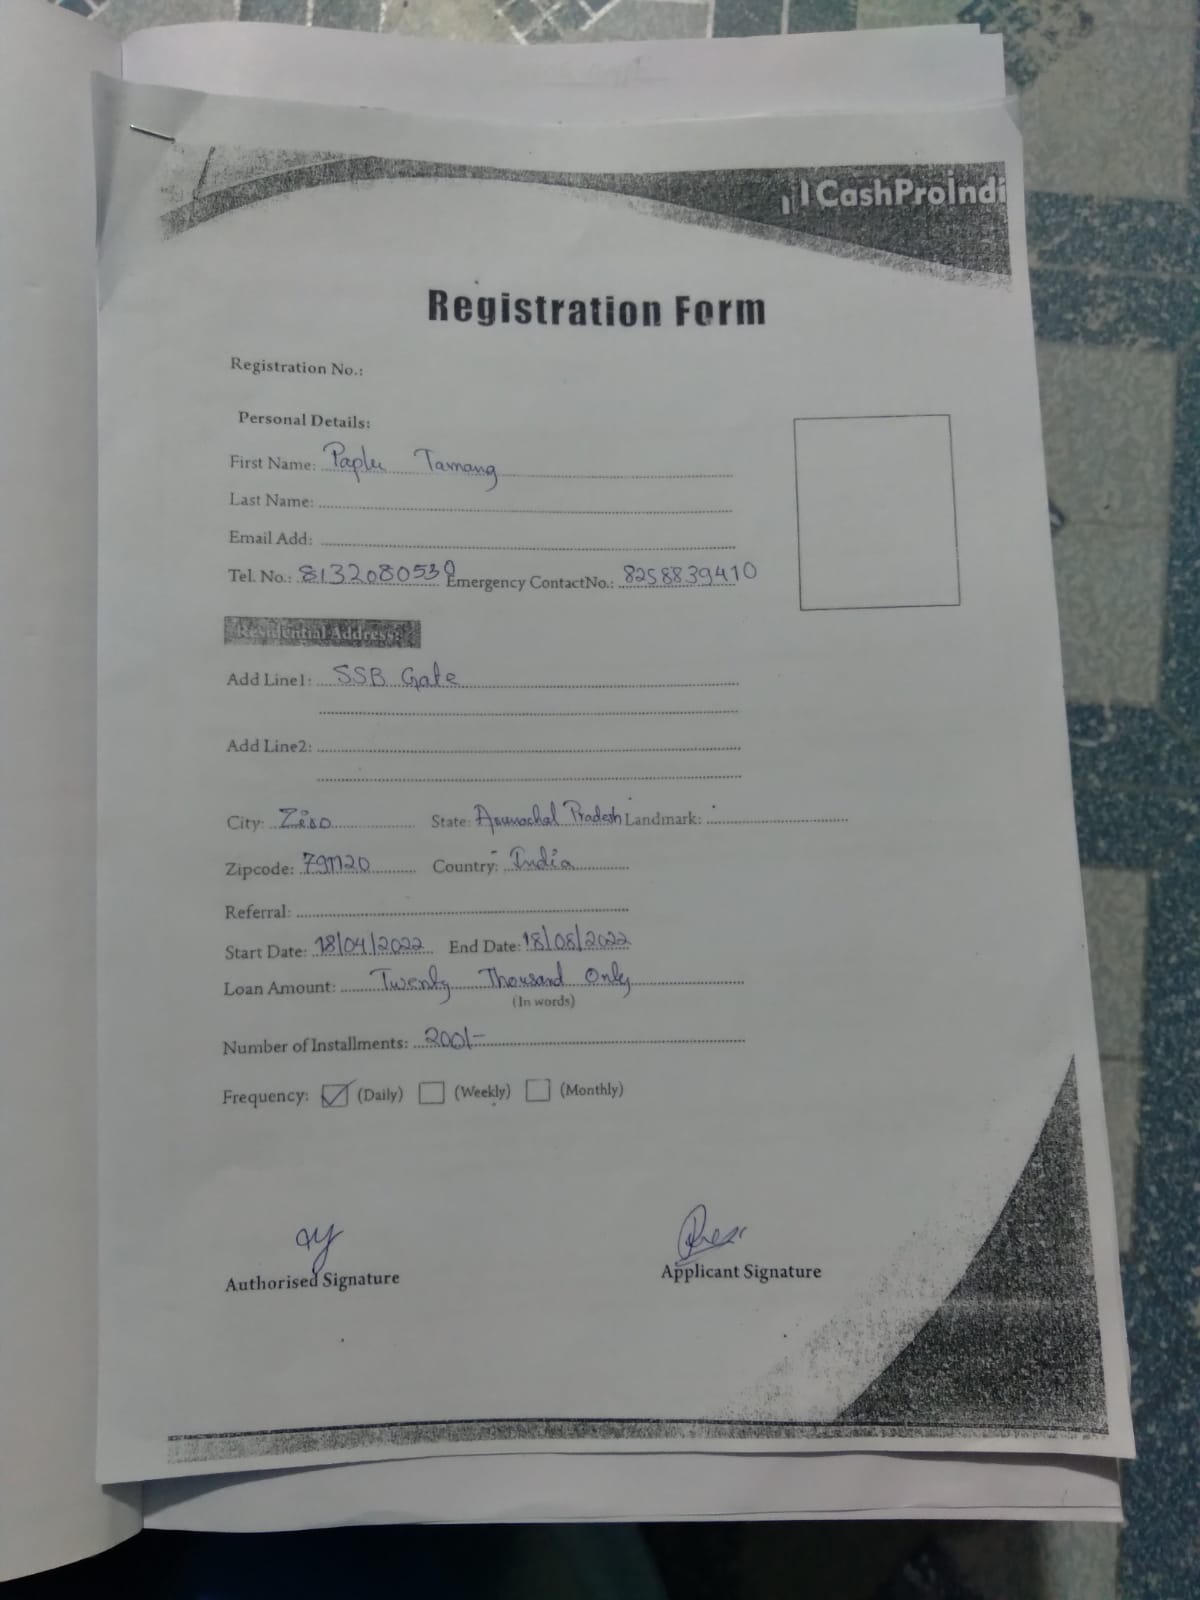 CashProIndi
Registration Form
Registration No.:
Personal Details:
First Name: Paplu Tamang
Last Name:
Email Add:
Tel. No.: 8132080539 Emergency ContactNo.: 8258839410
Residential Address:
Add Line1: SSB Gate
Add Line2:
City: Ziro State: Arunachal Pradesh Landmark:
Zipcode: 791120 Country: India
Referral:
Start Date: 18/04/2022 End Date: 18/08/2022
Loan Amount: Twenty Thousand Only
(In words)
Number of Installments: 200/-
Frequency: (Daily) (Weekly) (Monthly)
Authorised Signature Applicant Signature